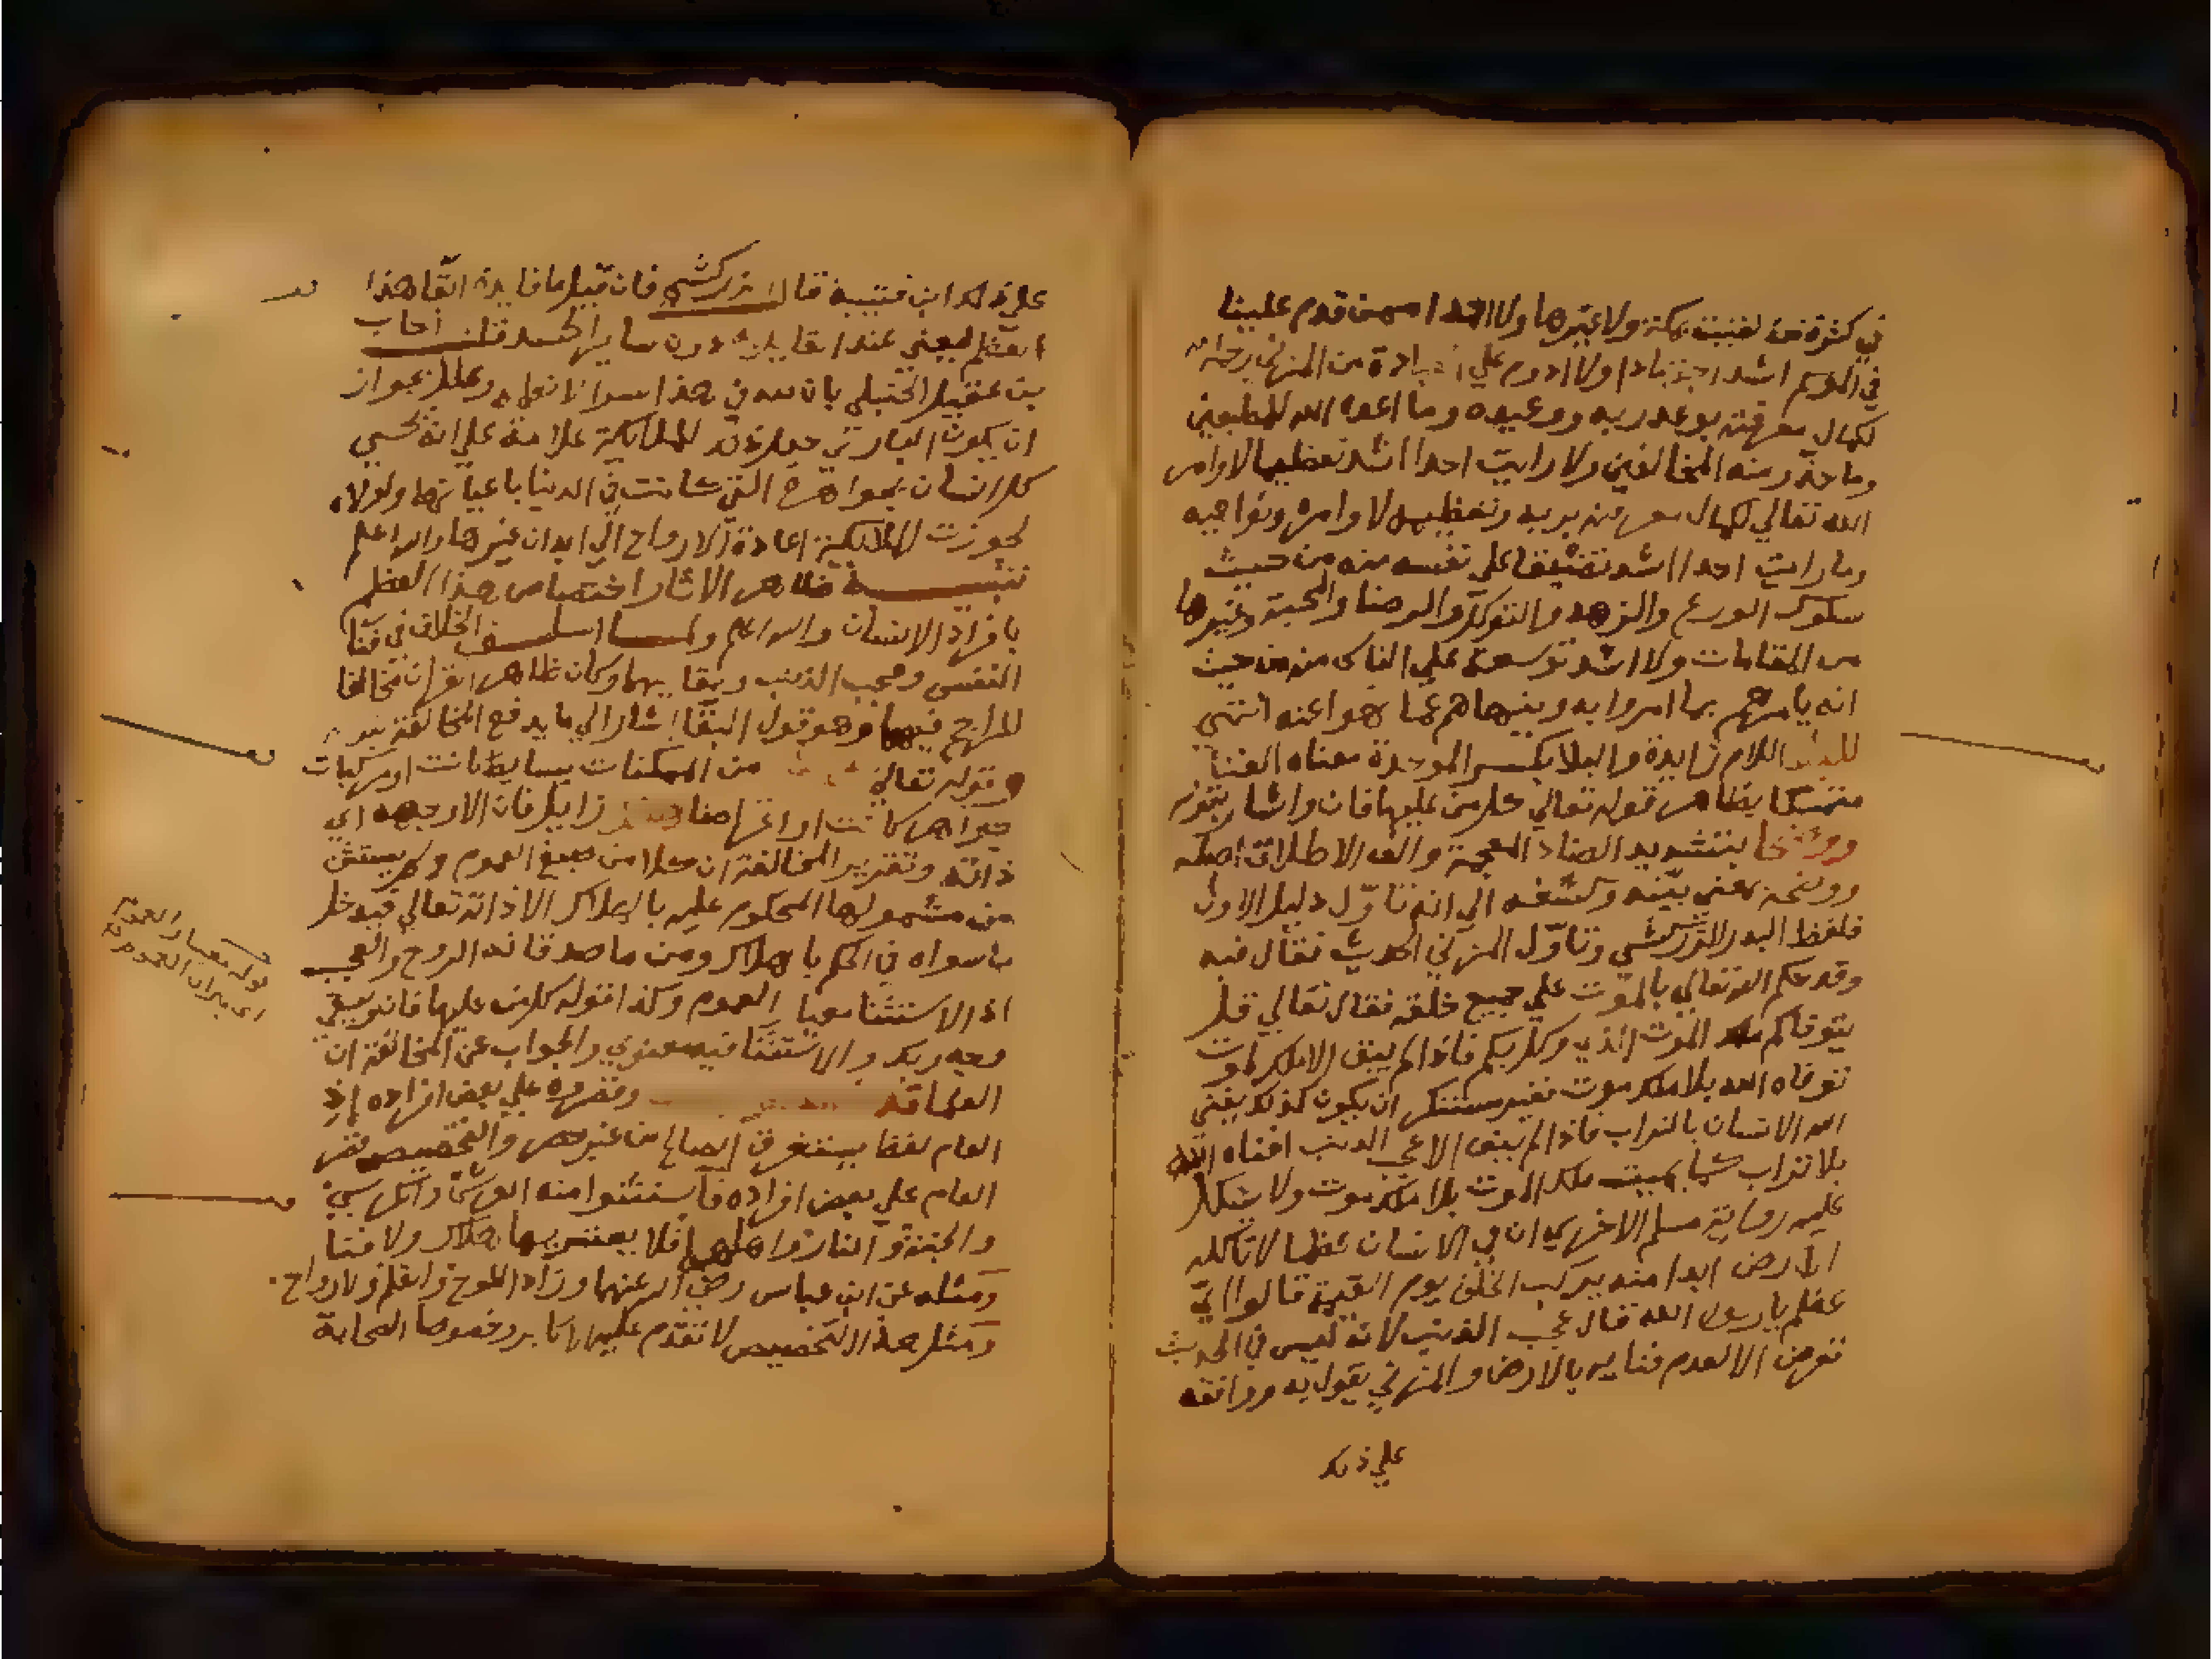 في كثرة من لقيت بمكة ولا غيرها ولا احدا ممن قدم علينا
في الموسم اشد اجتهادا ولا ادوم علي العبادة من المزني رحمه الله
لكمال معرفته بوعد ربه ووعيده وما اعد الله للمطيعين
وما حذر منه المخالفين ولا رايت احدا اشد تعظيما لاوامر
الله تعالي لكمال معرفته بربه وتعظيمه لاوامره ونواهيه
وما رايت احدا اشد تضييقا علي نفسه منه من حيث
سلوك الورع والزهد والتوكل والرضا والمحبة وغيرها
من المقامات ولا اشد توسعة علي الناس منه من حيث
انه يامرهم بما امروا به وينهاهم عما نهوا عنه انتهي
للبلي اللام زايدة والبلا بكسر الموحدة معناه الفنا
متمسكا بظاهر قوله تعالي كل من عليها فان واشار بقوله
ووضحا بتشديد الضاد المعجمة والف الاطلاق اصله
ووضحه بمعني بينه وكشفه الي انه تاول دليل الاول
فلفظ البدر الزركشي وتاول المزني الحديث فقال فيه
وقد حكم الله تعالي بالموت علي جميع خلقه فقال تعالي قل
يتوفاكم ملك الموت الذي وكل بكم فاذا لم يبق الا ملك الموت
توفاه الله بلا ملك موت فغير مستنكر ان يكون كذلك يفني
الله الانسان بالتراب فاذا لم يبق الا عجب الذنب افناه الله
بلا تراب كما يميت ملك الموت بلا ملك موت ولا يشكل
عليه رواية مسلم الاخري ان في الانسان عظما لا تاكله
الارض ابدا منه يركب الخلق يوم القيمة قالوا اي
عظم يا رسول الله قال عجب الذنب لانه ليس في الحديث
تعرض الا لعدم فنايه بالارض والمزني يقول به ووافقه
علي ذلك
علي ذلك ابن قتيبة قال الزركشي فان قيل ما فايدة ابقا هذا
العظم يعني عند القايل به دون ساير الجسد قلت اجاب
بن عقيل الحنبلي بان لله في هذا سرا لا نعلمه وعلل بجواز
ان يكون الباري جعل ذلك للملايكة علامة علي انه يحيي
كل انسان بجواهره التي كانت في الدنيا باعيانها ولولاه
لجوزت الملايكة اعادة الارواح الي ابدان غيرها والله اعلم
تنبيه ظاهر الاثار اختصاص هذا العظم
بافراد الانسان والله اعلم ولما اسلف الخلاف في فنا
النفس وعجب الذنب وبقايهما وكان ظاهر القران مخالفا
للراجح فيهما وهو قول البقا اشار الي ما يدفع المخالفة بقوله
وقوله تعالي من الممكنات بسايط كانت او مركبات
جواهر كانت او اعراضا زايل فان الا وجهه اي
ذاته وتقرير المخالفة ان كلا من صيغ العموم ولم يستثن
من مشمولها المحكوم عليه بالهلاك الا ذاته تعالي فيدخل
ما سواه في الحكم بالهلاك ومن ماصدقاته الروح والعجب
اذ الاستثنا معيار العموم وكذا قوله كل من عليها فان ويبقي
وجه ربك والاستثنا فيه معنوي والجواب عن المخالفة ان
العلما قد وقصروه علي بعض افراده اذ
العام لفظ يستغرق الصالح من غير حصر والتخصيص قصر
العام علي بعض افراده فاستثنوا منه العرش والكرسي
والجنة والنار واهلهما فلا يعتريها هلاك ولا فنا
ومثله عن ابن عباس رضي الله عنهما وزاد اللوح والقلم والارواح
ومثل هذا التخصيص لا تقدم عليه الاكابر وخصوصا الصحابة
قوله معيار العموم
اي ميزان العموم